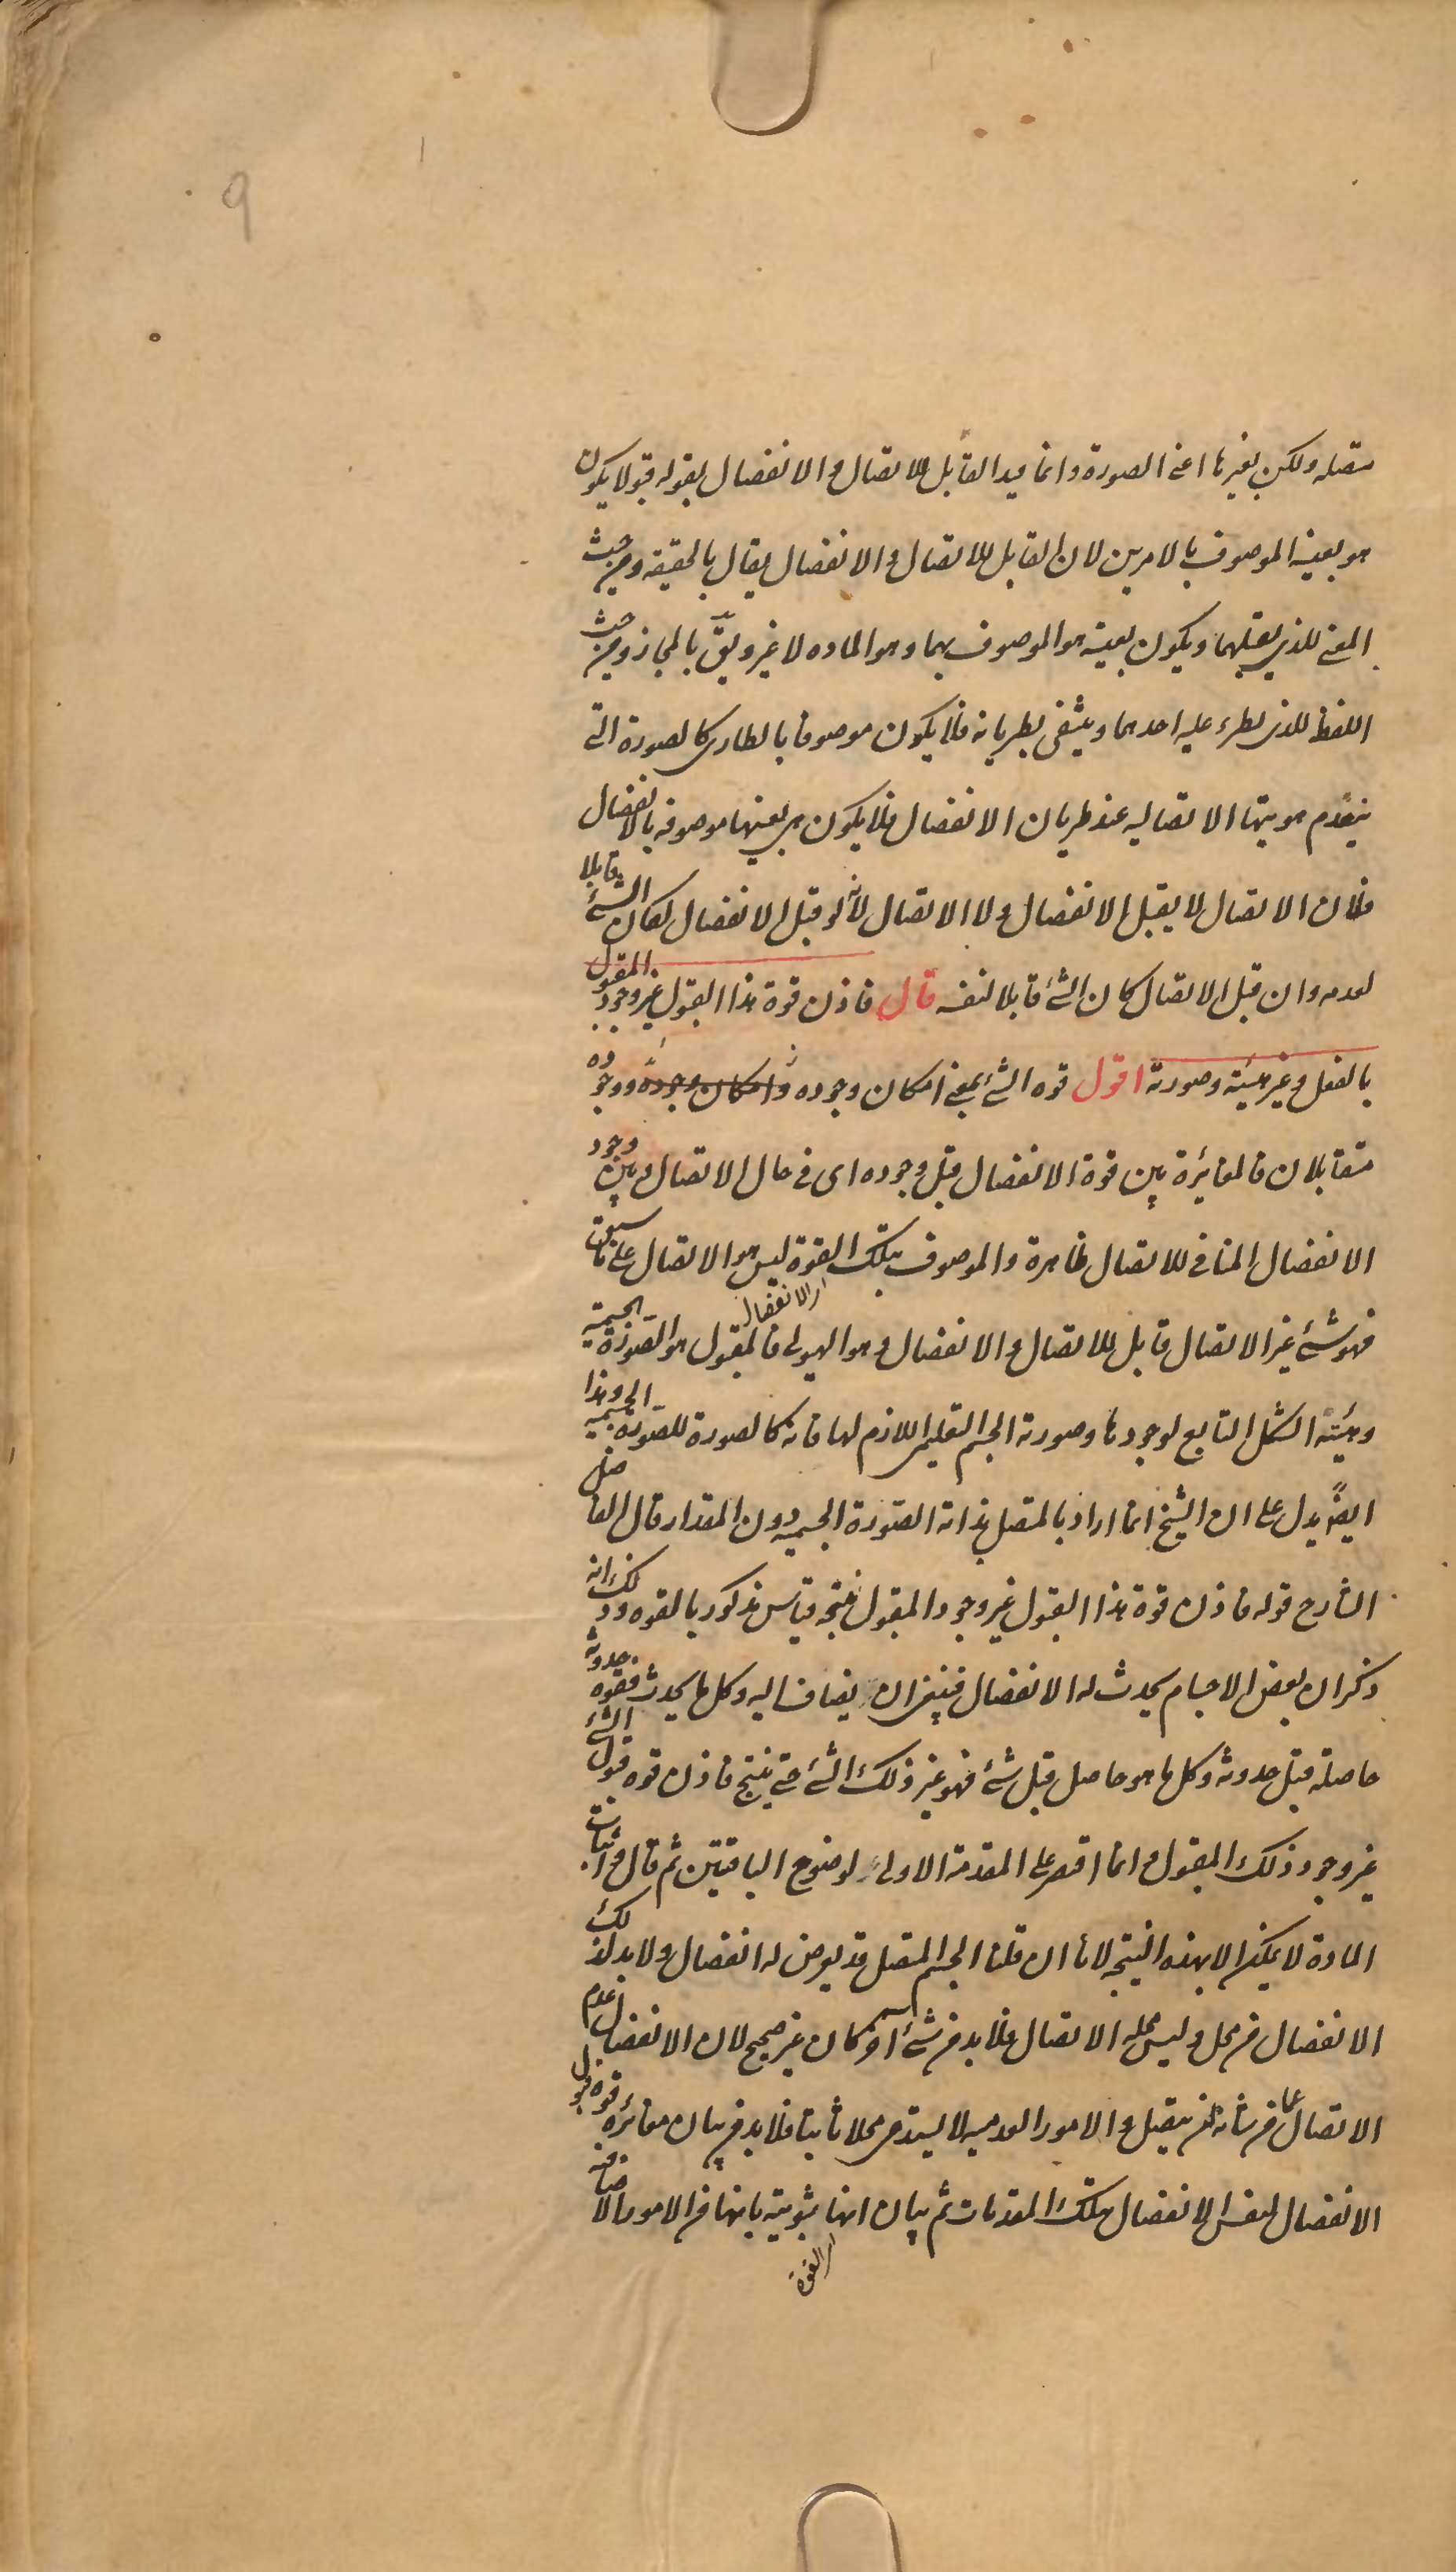 ٩
متصله ولكن بغيرها اعنى الصورة وانما قيد القابل للاتصال والانفصال بقوله قبولا يكون
هو بعينه الموصوف بالامرين لان القابل للاتصال والانفصال يقال بالحقيقه ومن حيث
المعنى للذى يقبلهما ويكون بعينه هو الموصوف بهما وهو الماده لا غير ويقّ بالمجاز ومن حيث
اللفظ للذى يطرء عليه احدهما وينتفى بطريانه فلا يكون موصوفا بالطارى كالصورة التى
ينعدم هويتها الاتصاليه عند طريان الانفصال فلا يكون هى بعينها موصوفه بالانفصال
فلان الاتصال لا يقبل الانفصال ولا الاتصال لانه لو قبل الانفصال لكان الشئ قابلا
لعدمه وان قبل الاتصال كان الشئ قابلا لنفسه قال فاذن قوة هذا القبول غير وجود المقبول
بالفعل وغير هيئته وصورته اقول قوه الشئ بمعنى امكان وجوده وامكان وجوده ووجوده
متقابلان فالمغائرة بين قوة الانفصال قبل وجوده اى فى حال الاتصال وبين وجود
الانفصال المنافى للاتصال ظاهرة والموصوف بتلك القوة ليس هو الاتصال على ما سبق
فهو شئ غير الاتصال قابل للاتصال والانفصال وهو الهيولى فالمقبول هو الصّورة الجسمية
اى الانفصال
وهيئته الشكل التابع لوجودها وصورته الجسم التعليمى اللازم لها فانه كالصورة للصّورة الجسميه وهذا
ايضًا يدل على ان الشيخ انما اراد بالمتصل بذاته الصّورة الجسميه دون المقدار قال الفاضل
الشارح قوله فاذن قوة هذا القبول غير وجود المقبول نتيجه قياس مذكور بالقوه وذلك انه
ذكر ان بعض الاجسام يحدث له الانفصال فينبغى ان يضاف اليه وكل ما يحدث فقوه حدوثه
حاصلة قبل حدوثه وكل ما هو حاصل قبل شئ فهو غير ذلك الشئ حتى ينتج فاذن قوه قبول الشئ
غير وجود ذلك المقبول وانما اقتصر على المقدمة الاولى لوضوح الباقيتين ثم قال واثبات
المادة لا يمكن الا بهذه النتيجة لانا ان قلنا الجسم المتصل قد يعرض له انفصال ولا بد لذلك
الانفصال من محل وليس محله الاتصال فلا بد من شئ آخر كان غير صحيح لان الانفصال عدم
الاتصال عما من شانه ان يتصل والامور العدميه لا يستدعى محلا ثابتا فلا بد من بيان مغائرة قوه قبول
الانفصال لنفس الانفصال بتلك المقدمات ثم بيان انها ثبوتيه بانها من الامور الاضافيه
اى القوة